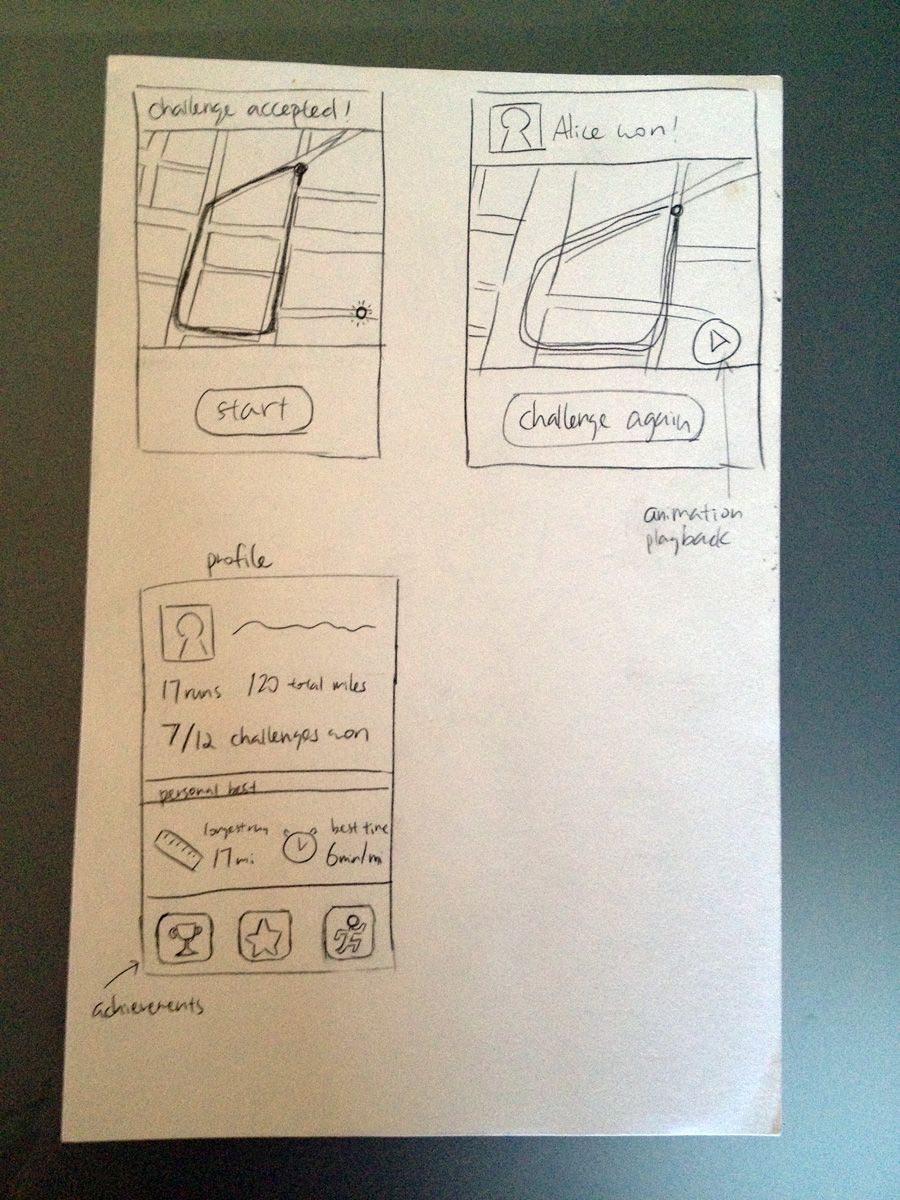 challenge accepted!
start
Alice won!
challenge again
animation
playback
profile
17 runs 120 total miles
7/12 challenges won
personal best
longest run
17 mi
best time
6min/mi
achievements